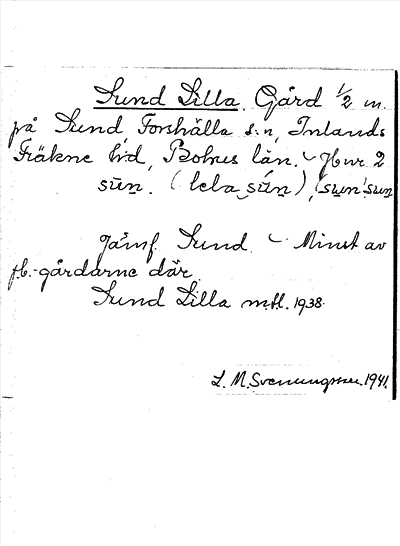 Sund Lilla. Gård 1/2 m.
på Sund, Forshälla s:n, Inlands
Fräkne h:d, Bohus län. - Hur 2
sūn. (lela sún), (sun'sun
Jämf. Sund. - Minst av
fl.-gårdarne där.
Sund Lilla mtl. 1938.
L. M. Svenungsson. 1941.